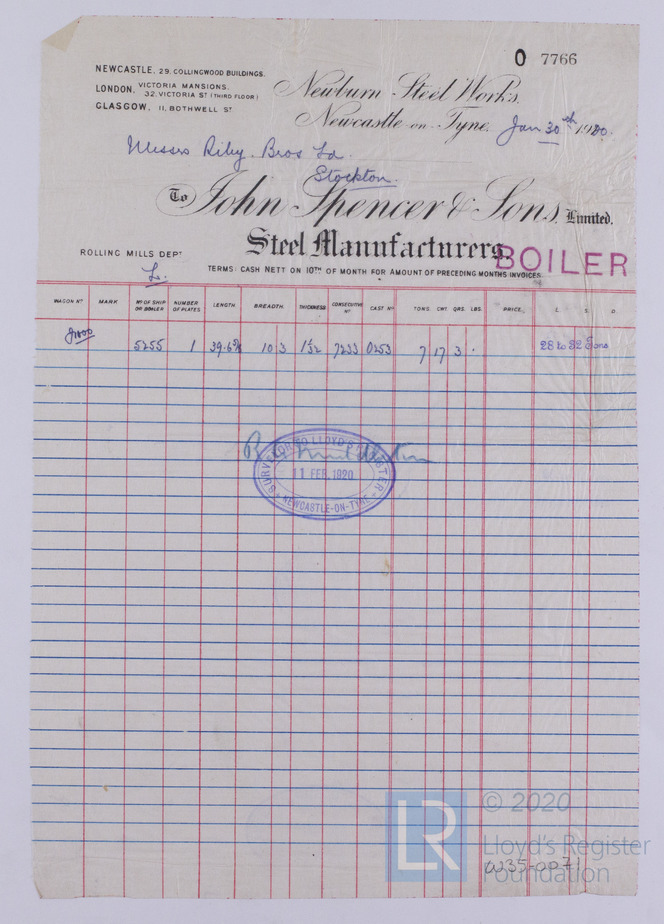 O 7766
NEWCASTLE, 29, COLLINGWOOD BUILDINGS.
LONDON, VICTORIA MANSIONS.
32, VICTORIA ST (THIRD FLOOR)
GLASGOW, 11, BOTHWELL ST.
Newburn Steel Works,
Newcastle-on-Tyne, Jan 30th 1920.
Messrs Riley Bros Ld
Stockton.
To John Spencer & Sons, Limited.
Steel Manufacturers.
BOILER
ROLLING MILLS DEPT
L.
TERMS: CASH NETT ON 10TH OF MONTH FOR AMOUNT OF PRECEDING MONTHS INVOICES.
WAGON No MARK No OF SHIP OR BOILER NUMBER OF PLATES LENGTH BREADTH. THICKNESS CONSECUTIVE No CAST No TONS. CWT. QRS. LBS. PRICE. L. S. D.
5255 1 10 3 1 1/32 7233 0253 7 17 3 . 28 to 32 Tons
SURVEYOR TO LLOYD'S REGISTER
11 FEB. 1920
NEWCASTLE-ON-TYNE
LR
© 2020
Lloyd's Register
Foundation
W35-0071